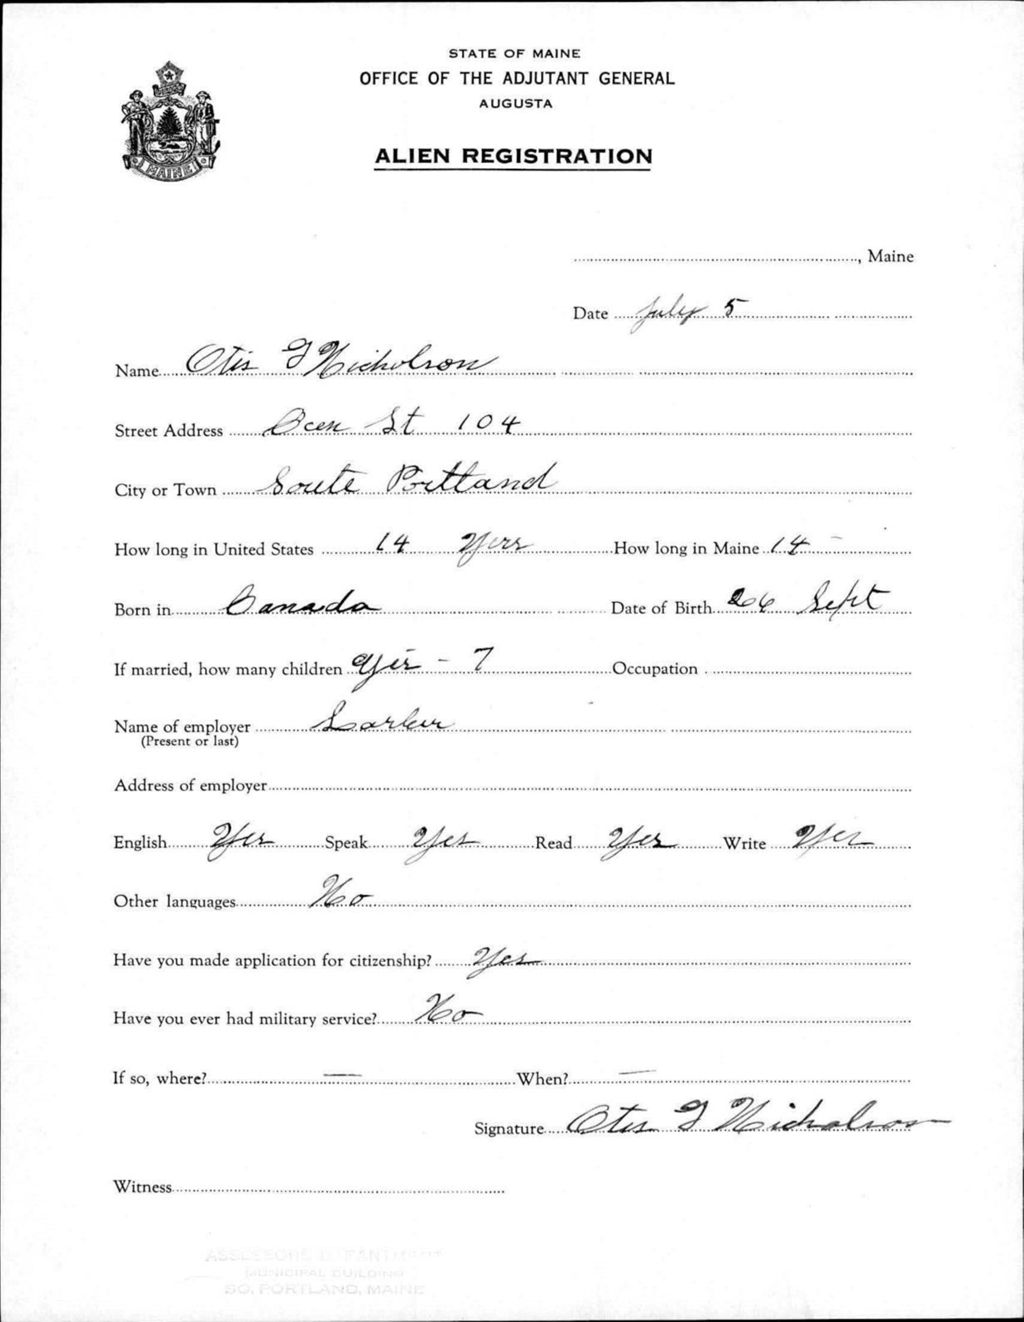 STATE OF MAINE
OFFICE OF THE ADJUTANT GENERAL
AUGUSTA
ALIEN REGISTRATION
MAINE
, Maine
Date July 5
Name Otis G Nicholson
Street Address Ocen St 104
City or Town Soute Portland
How long in United States 14 Yers How long in Maine 14
Born in Canada Date of Birth 26 Sept
If married, how many children Yes - 7 Occupation
Name of employer
(Present or last)
Address of employer
English Yes Speak Yes Read Yes Write Yes
Other languages No
Have you made application for citizenship? Yes
Have you ever had military service? No
If so, where? — When? —
Signature Otis G Nicholson
Witness
ASSESSORS DEPARTMENT
MUNICIPAL BUILDING
SO. PORTLAND, MAINE